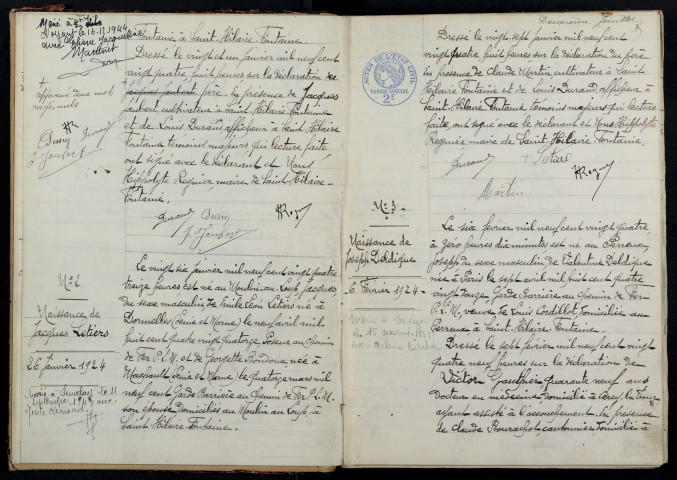 Marié à
le 16.12.1944
avec
Martinet
Fontaine à Saint Hilaire Fontaine.
Dressé le vingt et un janvier mil neuf cent
vingt quatre huit heures sur la déclaration du
père. En présence de Jacques
Aubert cultivateur à Saint Hilaire Fontaine
et de Louis Durand afficheur à Saint Hilaire
Fontaine témoins majeurs qui lecture faite
ont signé avec le déclarant et Nous
Hippolyte Regnier maire de Saint Hilaire-
Fontaine.
approuvé deux mots
rayés nuls
Durand
No 2
Naissance de
Jacques Letiers
26 janvier 1924
Le vingt six janvier mil neuf cent vingt quatre
treize heures est né au Moulin au Loup Jacques
du sexe masculin de Emile Léon Letiers né à
Dormelles (Seine et Marne) le neuf avril mil
huit cent quatre vingt quatorze Poseur au Chemin
de Fer P.L.M. et de Georgette née à
Machault Seine et Marne, le quatorze mars mil
neuf cent Garde Barrière au Chemin de Fer P.L.M.
son épouse domiciliés au Moulin au Loup, à
Saint Hilaire Fontaine.
Dressé le vingt sept janvier mil neuf cent
vingt quatre huit heures sur la déclaration du père.
En présence de Claude Martin, cultivateur à Saint
Hilaire Fontaine et de Louis Durand afficheur à
Saint-Hilaire Fontaine témoins majeurs qui lecture
faite, ont signé avec le déclarant et Nous Hippolyte
Regnier maire de Saint Hilaire Fontaine.
Durand Letiers
Martin
ACTES DE L'ÉTAT CIVIL
PAPIER SPÉCIAL
2F
No 3
Naissance de
Joseph Daldigue
6 Février 1924
Le six février mil neuf cent vingt quatre
à zéro heures dix minutes est né au Perreau
Joseph du sexe masculin de Valentine Daldigue
née à Paris le sept avril mil huit cent quatre
vingt douze, Garde Barrière au Chemin de Fer
P.L.M., veuve de Louis Cordillot domiciliée au
Perreau à Saint Hilaire Fontaine.
Dressé le sept février mil neuf cent vingt
quatre neuf heures sur la déclaration de
Victor Gauthier quarante neuf ans
Docteur en médecine domicilié à Cercy la Tour
ayant assisté à l'accouchement. En présence
de Claude Bourachot, cantonnier domicilié à